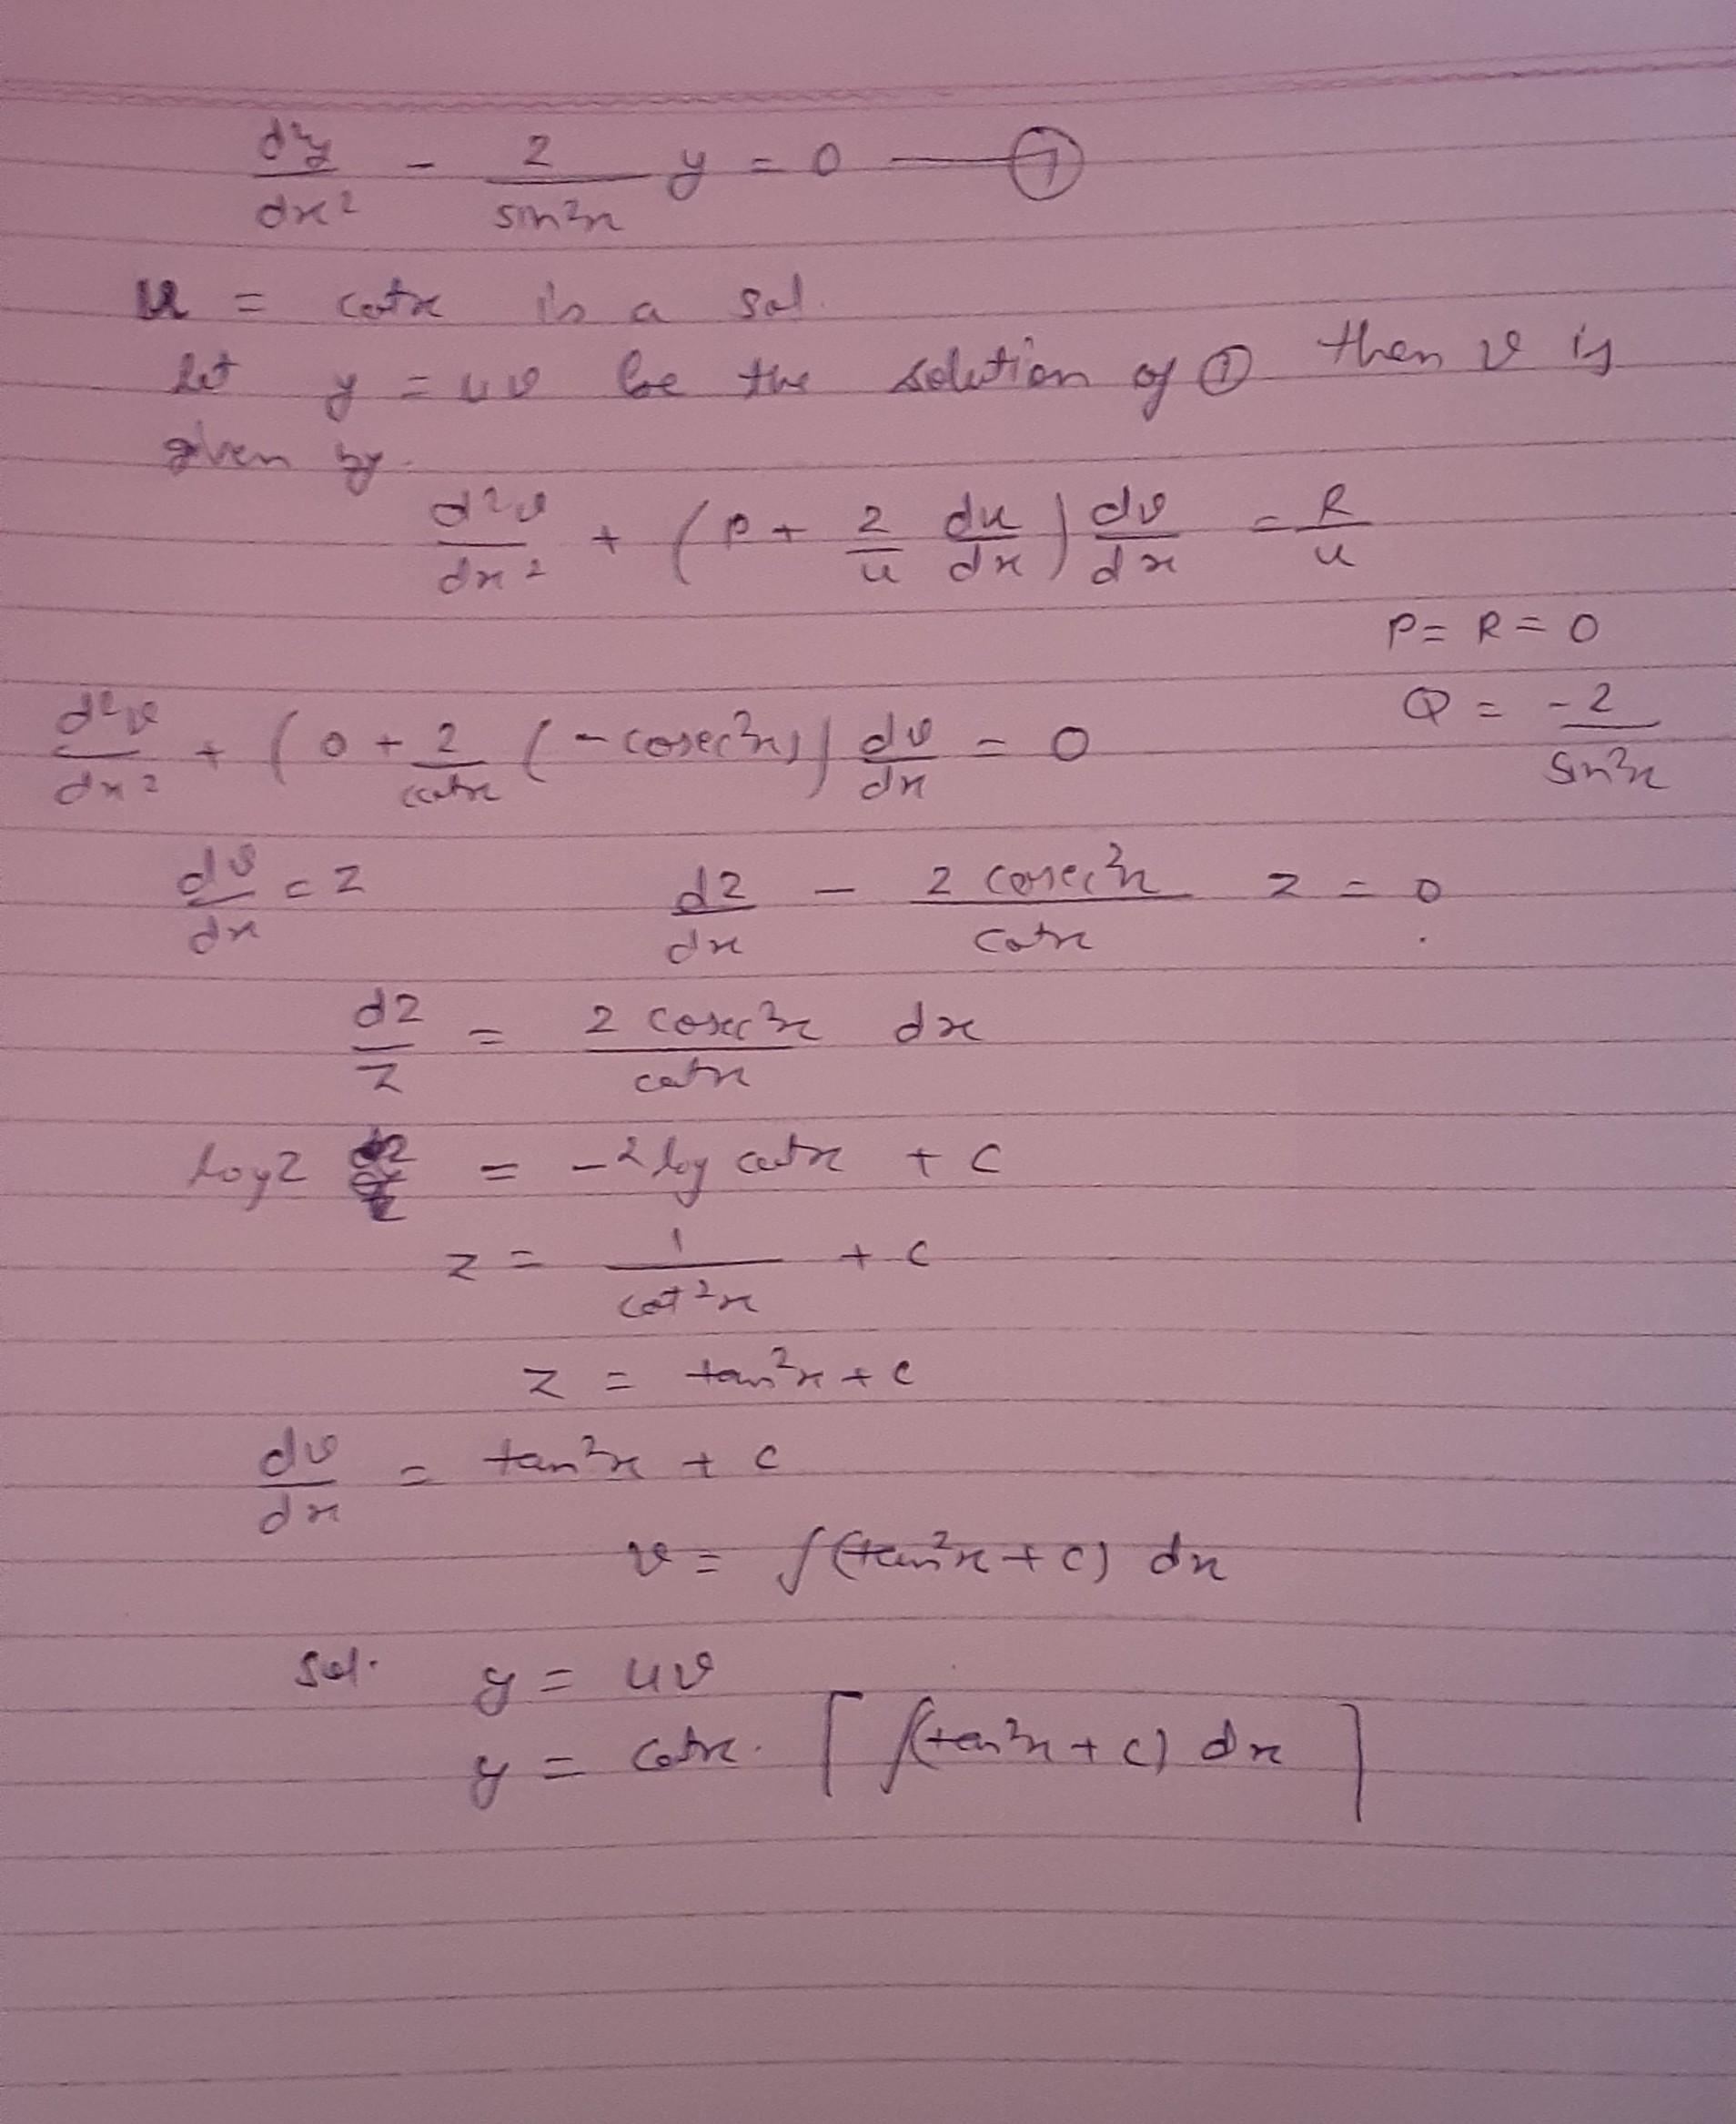 d²y/dx² - 2/sin²x y = 0 — ①
u = cotx is a sol.
Let y = uv be the solution of ① then v is
given by.
d²v/dx² + (P + 2/u du/dx) dv/dx = R/u
P = R = 0
Q = -2/sin²x
d²v/dx² + (0 + 2/cotx (-cosec²x)) dv/dx = 0
dv/dx = z dz/dx - 2 cosec²x/cotx z = 0
dz/z = 2 cosec²x/cotx dx
log z = -2 log cotx + c
z = 1/cot²x + c
z = tan²x + c
dv/dx = tan²x + c
v = ∫(tan²x + c) dx
Sol. y = uv
y = cotx. [∫(tan²x + c) dx]